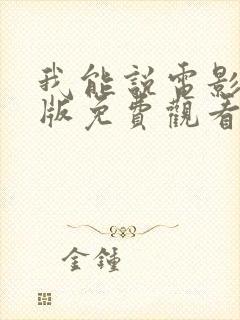 我能說電影
版免費觀看
金鍾